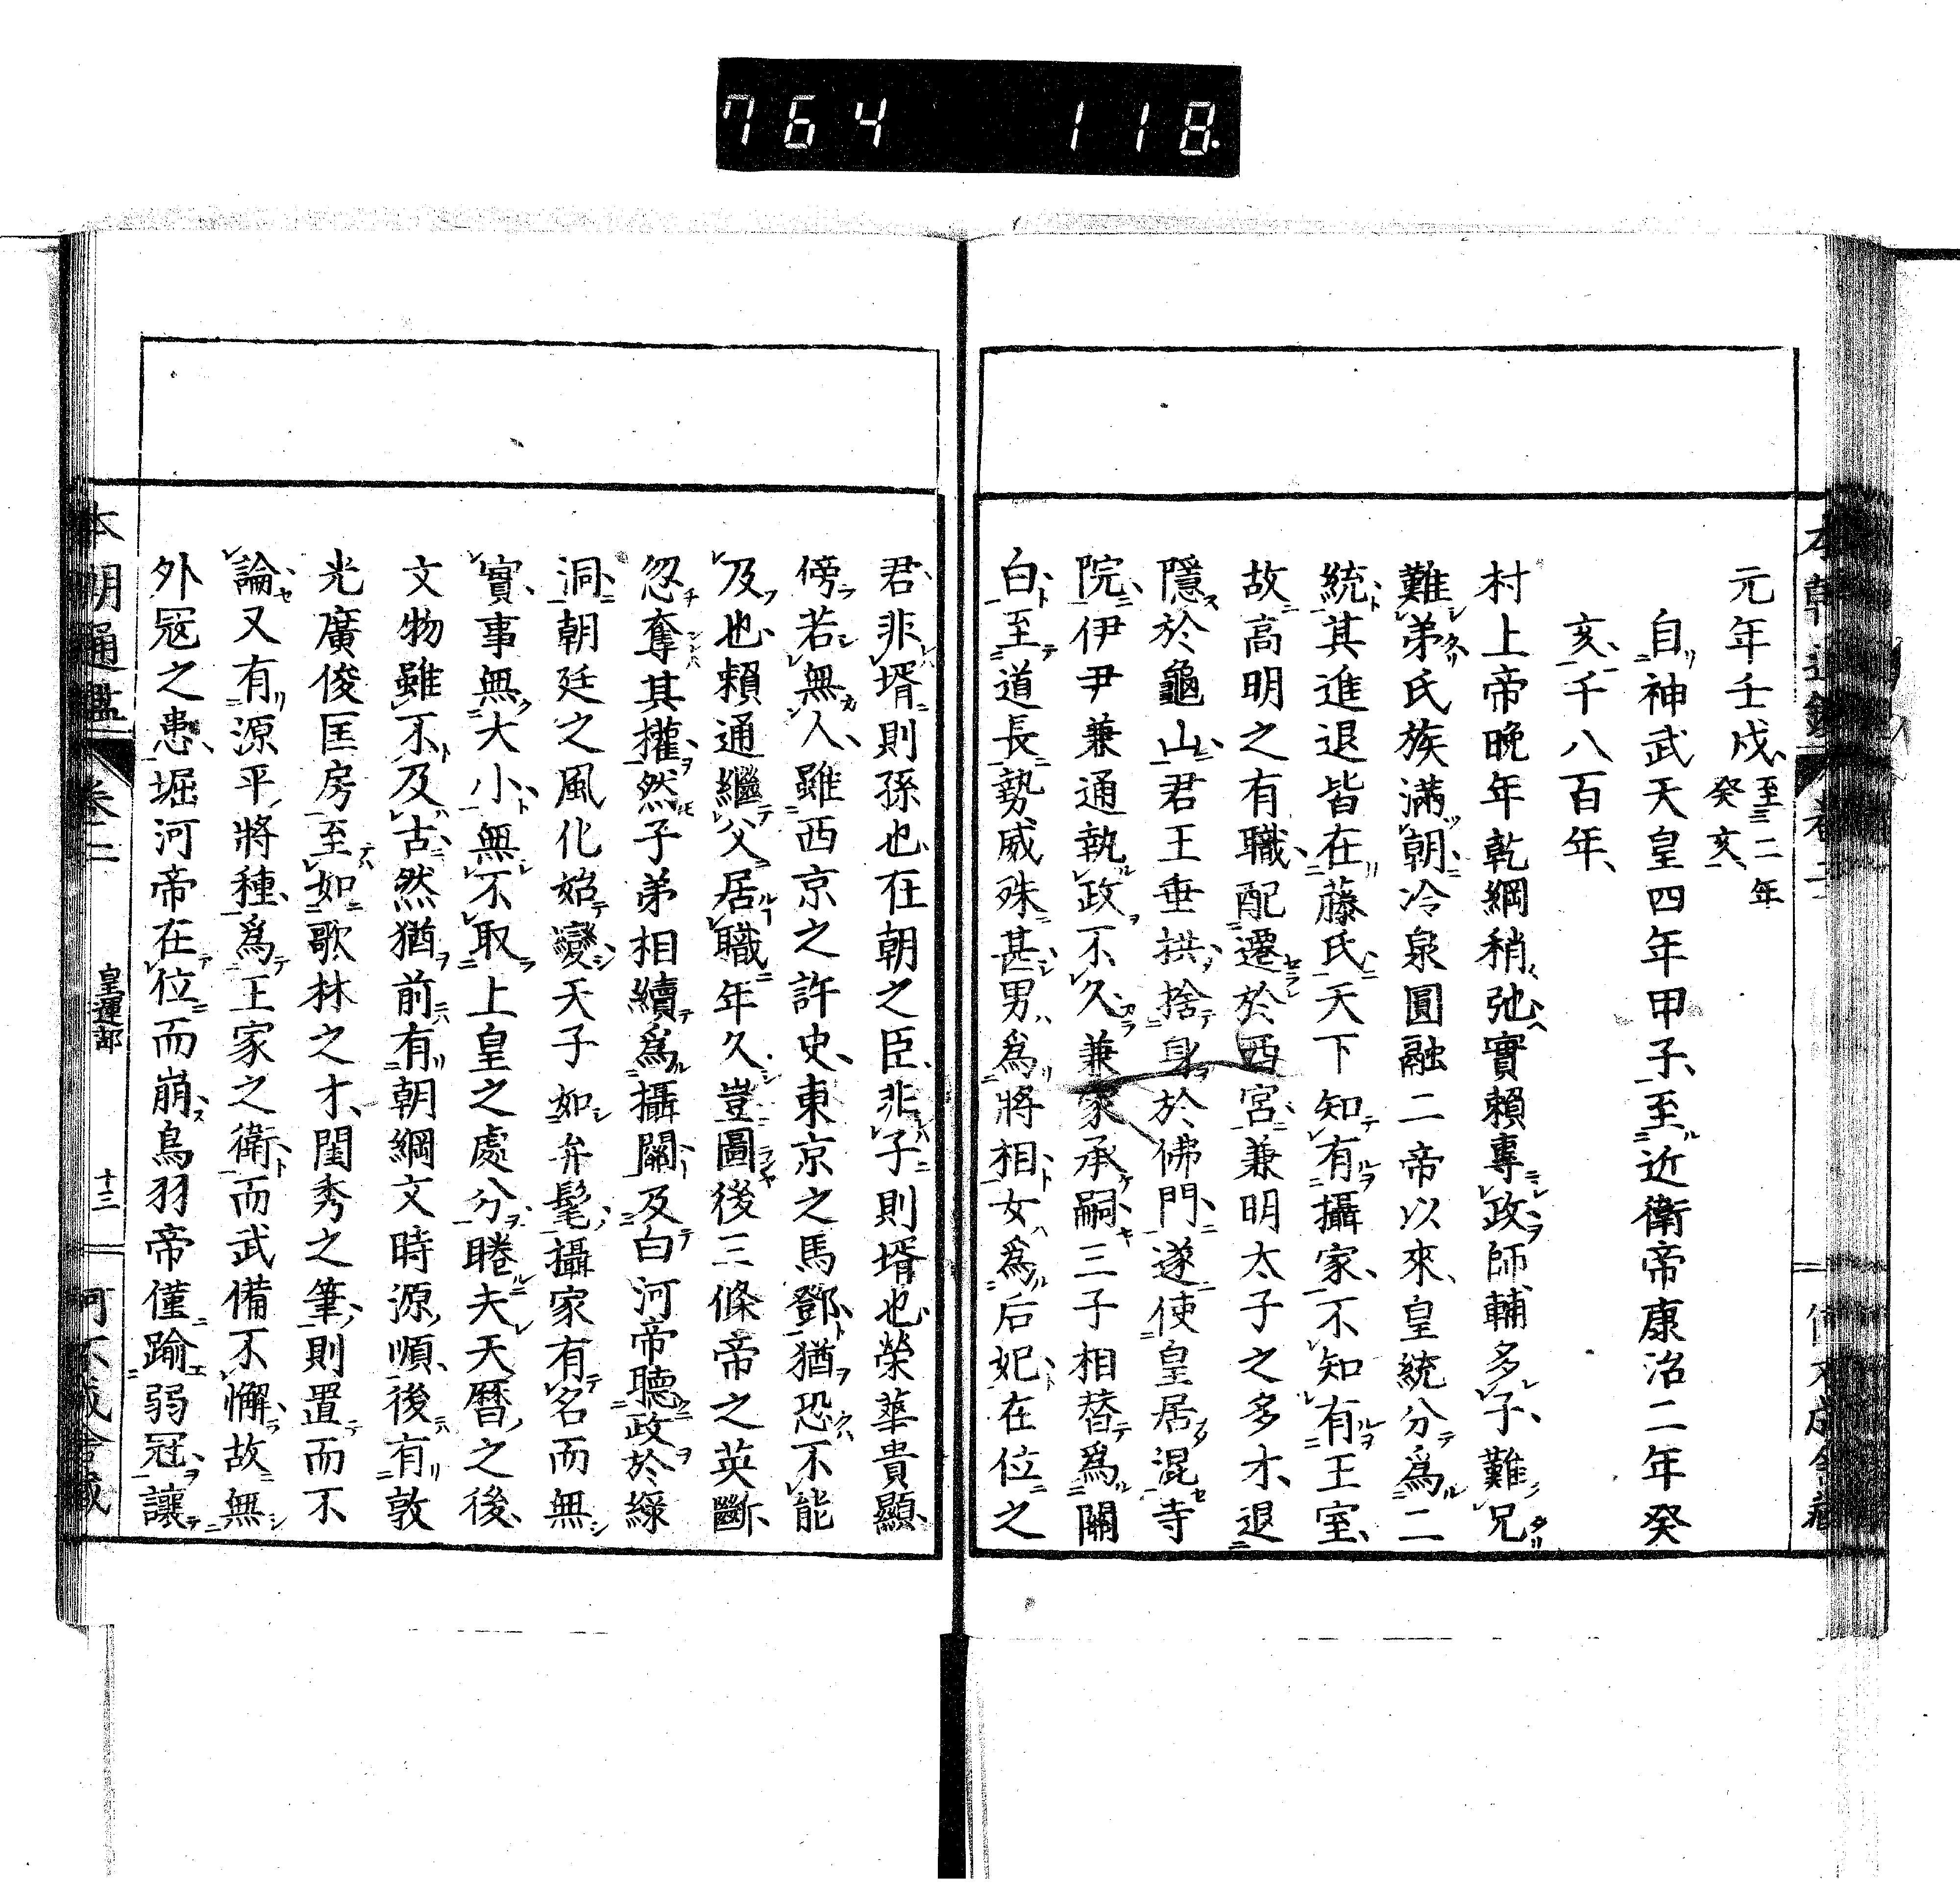 764 118.
元年壬戌、至二年
癸亥、
自神武天皇四年甲子、至近衛帝康治二年癸
亥、千八百年、
村上帝晩年乾綱稍弛、實賴專政、師輔多子、難兄
難弟、氏族滿朝、冷泉圓融二帝以來、皇統分爲二
統、其進退皆在藤氏、天下知有攝家、不知有王室、
故高明之有職、配遷於西宮、兼明太子之多才、退
隱於龜山、君王垂拱、捨身於佛門、遂使皇居混寺
院、伊尹兼通執政不久、兼家承嗣、三子相替爲關
白、至道長勢威殊甚、男爲將相、女爲后妃、在位之
君、非壻則孫也、在朝之臣、非子則壻也、榮華貴顯、
傍若無人、雖西京之許史、東京之馬鄧、猶恐不能
及也、賴通繼父居職年久、豈圖後三條帝之英斷、
忽奪其權、然子弟相續爲攝關、及白河帝聽政於綠
洞、朝廷之風化始變、天子如弁髦、攝家有名而無
實、事無大小、無不取上皇之處分、睠夫天曆之後、
文物雖不及古、然猶前有朝綱文時源順、後有敦
光廣俊匡房、至如歌林之才、閨秀之筆、則置而不
論、又有源平將種、爲王家之衛、而武備不懈、故無
外冦之患、堀河帝在位而崩、鳥羽帝僅踰弱冠、讓
本朝通鑑 卷二 皇運部 十三